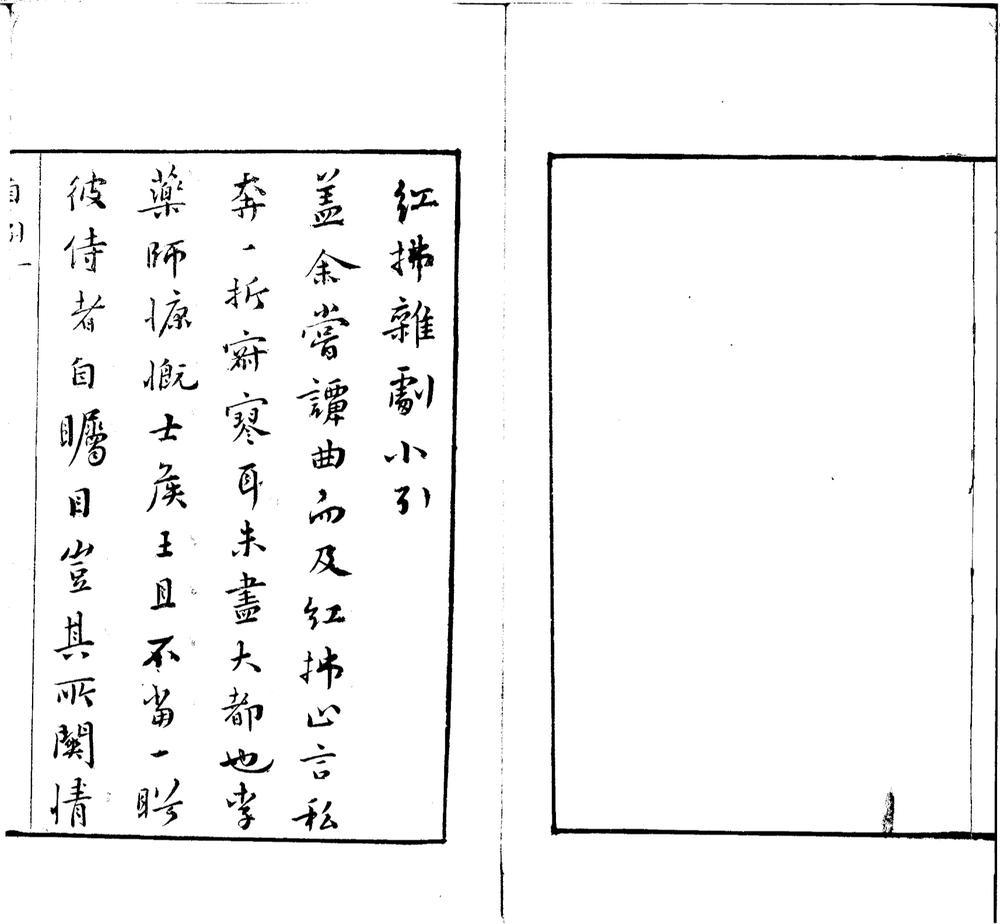 紅拂雜劇小引
蓋余嘗譚曲而及紅拂止言私
奔一折窘寥耳未盡大都也李
藥師慷慨士侯王且不當一盻
彼侍者自矚目豈其所關情
自引一